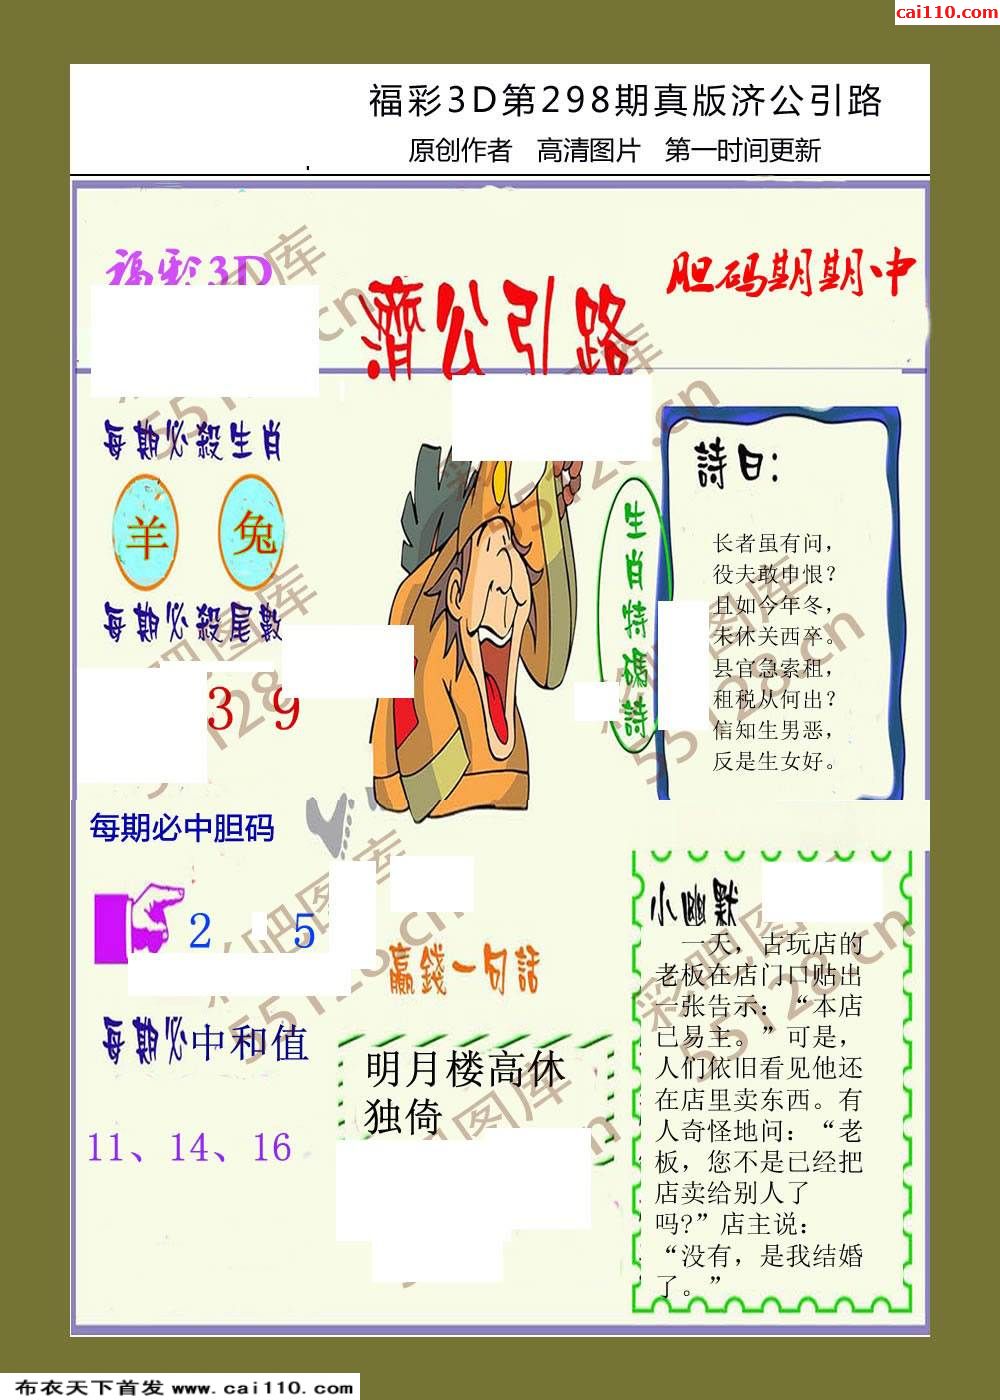 cai110.com
福彩3D第298期真版济公引路
原创作者 高清图片 第一时间更新
福彩3D
濟公引路
胆码期期中
每期必殺生肖
羊 兔
每期必殺尾數
3 9
生肖特碼詩
詩曰：
长者虽有问，
役夫敢申恨？
且如今年冬，
未休关西卒。
县官急索租，
租税从何出？
信知生男恶，
反是生女好。
每期必中胆码
2 5
每期必中和值
11、14、16
赢錢一句話
明月楼高休
独倚
小幽默
一天，古玩店的
老板在店门口贴出
一张告示：“本店
已易主。”可是，
人们依旧看见他还
在店里卖东西。有
人奇怪地问：“老
板，您不是已经把
店卖给别人了
吗?”店主说：
“没有，是我结婚
了。”
彩吧图库
55128.cn
布衣天下首发 www.cai110.com